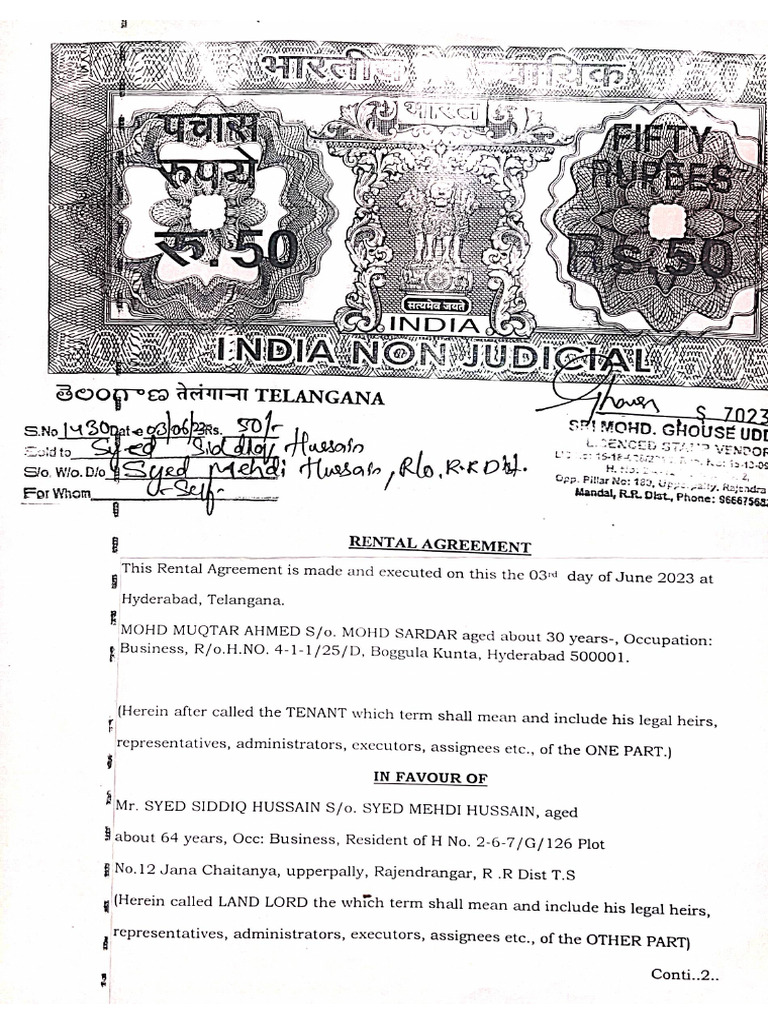 भारतीय
पचास
रुपये
रु.50
भारत
सत्यमेव जयते
INDIA
FIFTY
RUPEES
Rs.50
INDIA NON JUDICIAL
తెలంగాణ तेलंगाना TELANGANA
S.No 1430 Date 03/06/23 Rs. 50/-
Sold to Syed Siddiq Hussain
S/o. W/o. D/o Syed Mehdi Hussain, R/o. R.R Dist.
For Whom Self
S 7023
SRI MOHD. GHOUSE UDD
LICENCED STAMP VENDOR
Opp. Pillar No: 180, Upperpally, Rajendra
Mandal, R.R. Dist., Phone: 96667568
RENTAL AGREEMENT
This Rental Agreement is made and executed on this the 03rd day of June 2023 at
Hyderabad, Telangana.
MOHD MUQTAR AHMED S/o. MOHD SARDAR aged about 30 years-, Occupation:
Business, R/o.H.NO. 4-1-1/25/D, Boggula Kunta, Hyderabad 500001.
(Herein after called the TENANT which term shall mean and include his legal heirs,
representatives, administrators, executors, assignees etc., of the ONE PART.)
IN FAVOUR OF
Mr. SYED SIDDIQ HUSSAIN S/o. SYED MEHDI HUSSAIN, aged
about 64 years, Occ: Business, Resident of H No. 2-6-7/G/126 Plot
No.12 Jana Chaitanya, upperpally, Rajendrangar, R .R Dist T.S
(Herein called LAND LORD the which term shall mean and include his legal heirs,
representatives, administrators, executors, assignees etc., of the OTHER PART)
Conti..2..